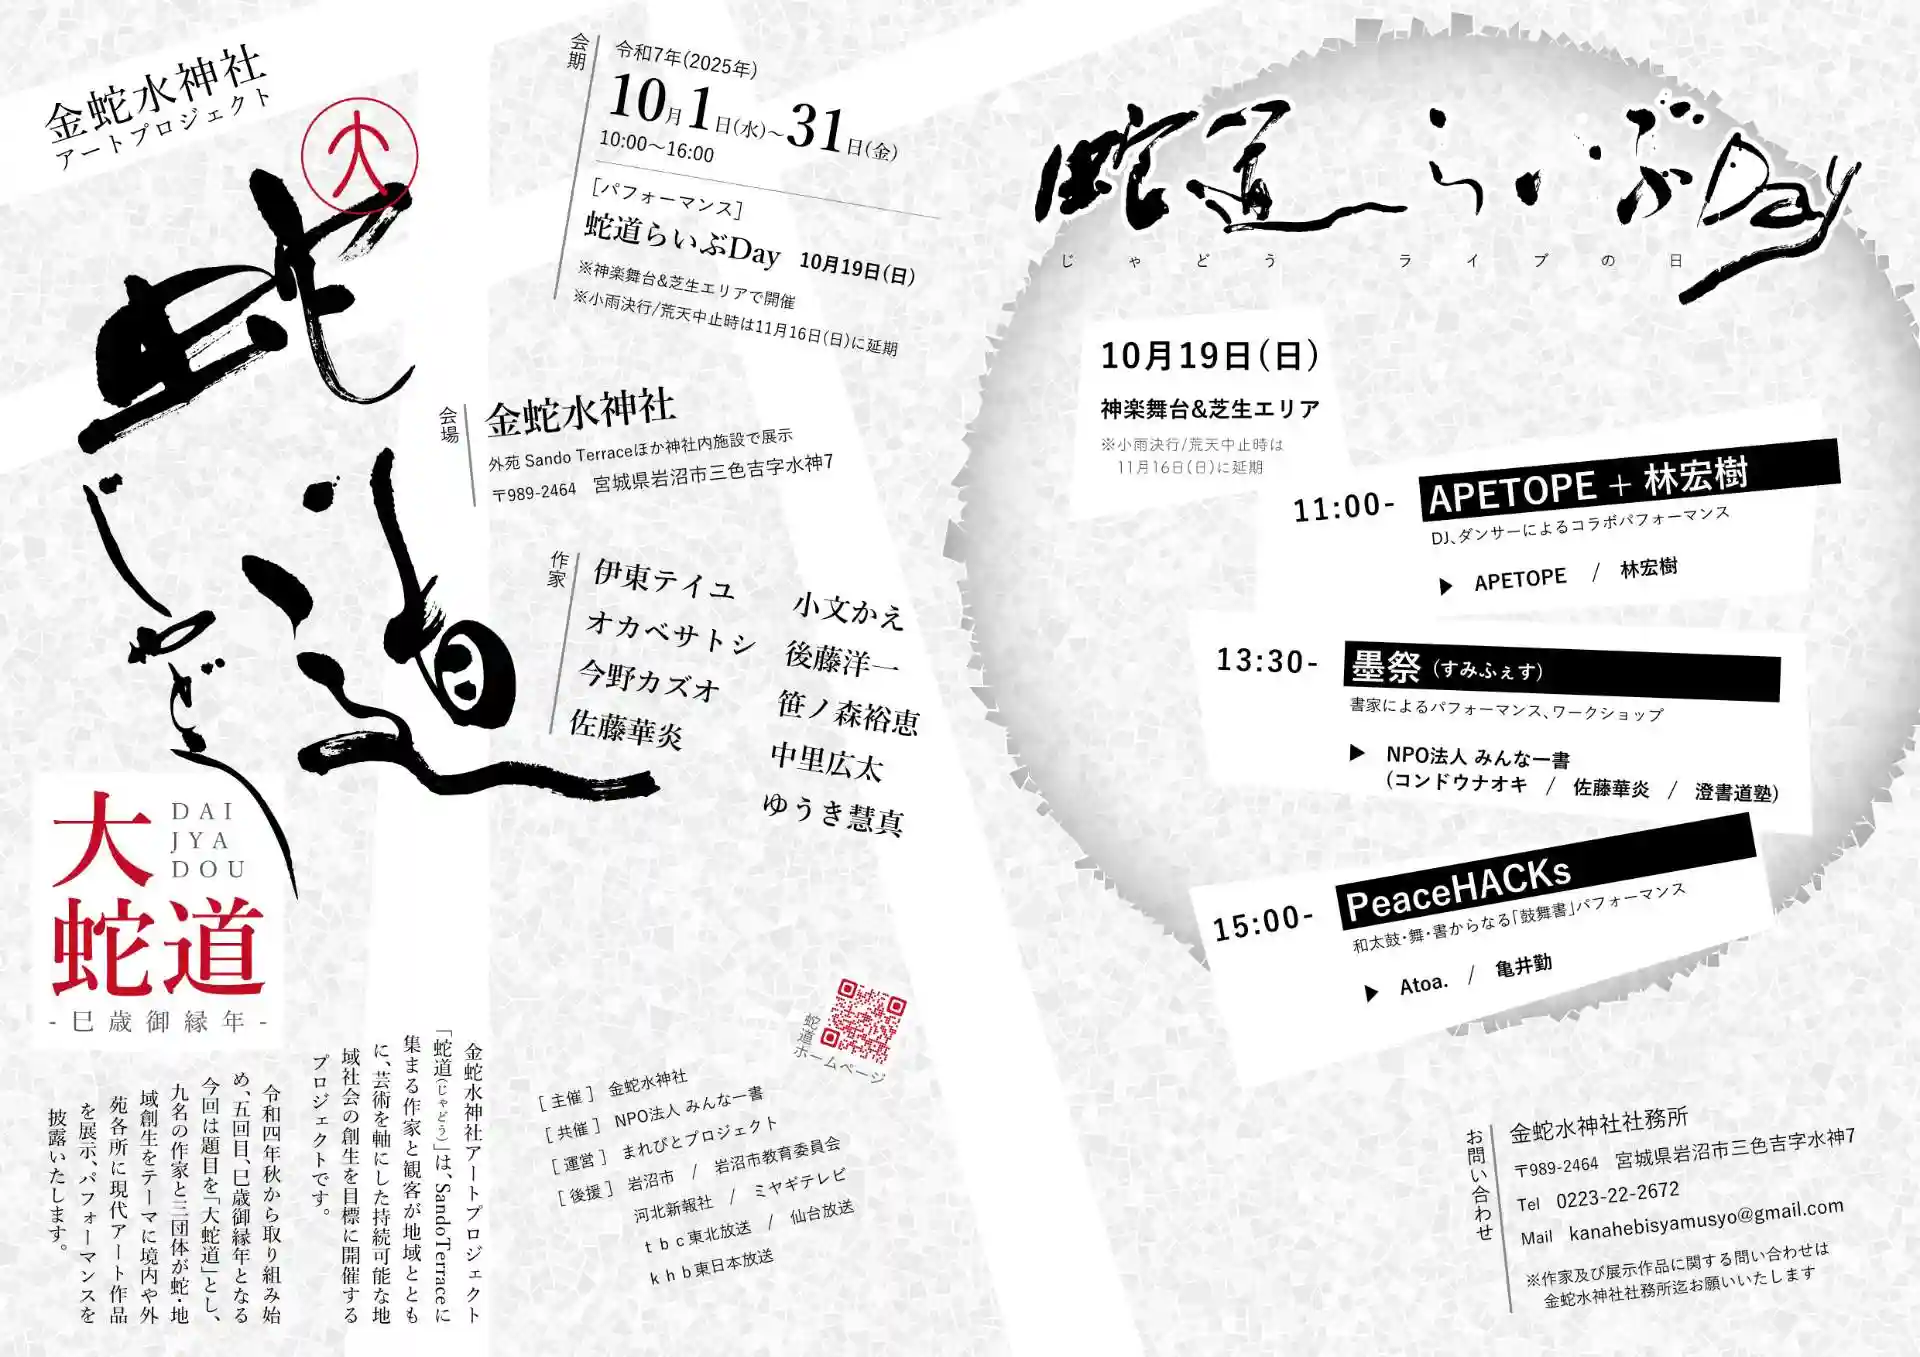 金蛇水神社
アートプロジェクト
大
蛇道
じゃどう
大
蛇道
DAI
JYA
DOU
-巳歳御縁年-
会期
令和7年(2025年)
10月1日(水)~31日(金)
10:00~16:00
[パフォーマンス]
蛇道らいぶDay 10月19日(日)
※神楽舞台&芝生エリアで開催
※小雨決行/荒天中止時は11月16日(日)に延期
会場
金蛇水神社
外苑 Sando Terraceほか神社内施設で展示
〒989-2464 宮城県岩沼市三色吉字水神7
作家
伊東テイユ
オカベサトシ
今野カズオ
佐藤華炎
小文かえ
後藤洋一
笹ノ森裕恵
中里広太
ゆうき慧真
金蛇水神社アートプロジェクト
「蛇道(じゃどう)」は、SandoTerraceに
集まる作家と観客が地域ととも
に、芸術を軸にした持続可能な地
域社会の創生を目標に開催する
プロジェクトです。
令和四年秋から取り組み始
め、五回目、巳歳御縁年となる
今回は題目を「大蛇道」とし、
九名の作家と三団体が蛇・地
域創生をテーマに境内や外
苑各所に現代アート作品
を展示、パフォーマンスを
披露いたします。
蛇道
ホームページ
[主催] 金蛇水神社
[共催] NPO法人 みんな一書
[運営] まれびとプロジェクト
[後援] 岩沼市 / 岩沼市教育委員会
河北新報社 / ミヤギテレビ
tbc東北放送 / 仙台放送
khb東日本放送
蛇道らいぶDay
じゃどう ライブの日
10月19日(日)
神楽舞台&芝生エリア
※小雨決行/荒天中止時は
11月16日(日)に延期
11:00- APETOPE + 林宏樹
DJ、ダンサーによるコラボパフォーマンス
▶ APETOPE / 林宏樹
13:30- 墨祭 (すみふぇす)
書家によるパフォーマンス、ワークショップ
▶ NPO法人 みんな一書
(コンドウナオキ / 佐藤華炎 / 澄書道塾)
15:00- PeaceHACKs
和太鼓・舞・書からなる「鼓舞書」パフォーマンス
▶ Atoa. / 亀井勤
お問い合わせ
金蛇水神社社務所
〒989-2464 宮城県岩沼市三色吉字水神7
Tel 0223-22-2672
Mail kanahebisyamusyo@gmail.com
※作家及び展示作品に関する問い合わせは
金蛇水神社社務所迄お願いいたします